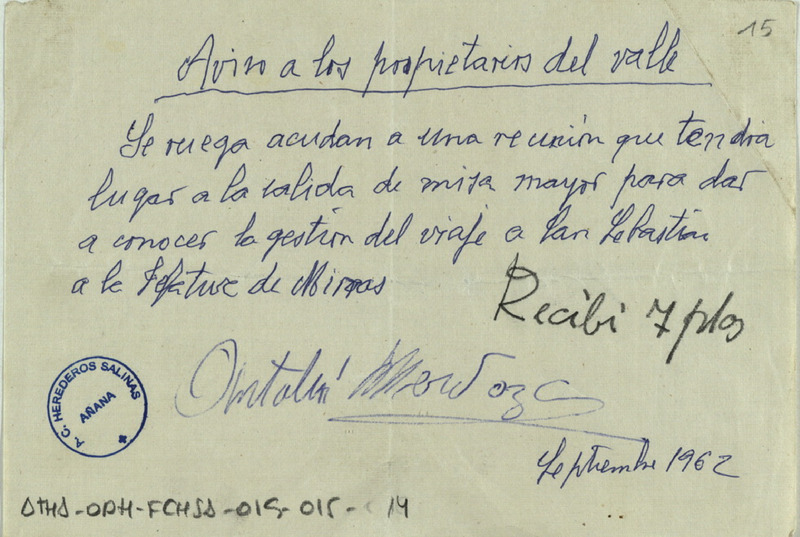 15
Aviso a los propietarios del valle
Se ruega acudan a una reunión que tendra
lugar a la salida de misa mayor para dar
a conocer la gestion del viaje a San Sebastian
a la Jefatura de Minas
Recibi 7 ptas
Antolin Mendoza
C. HEREDEROS SALINAS
AÑANA
Septiembre 1962
ATHA-DAH-FCHSA-015-015-14